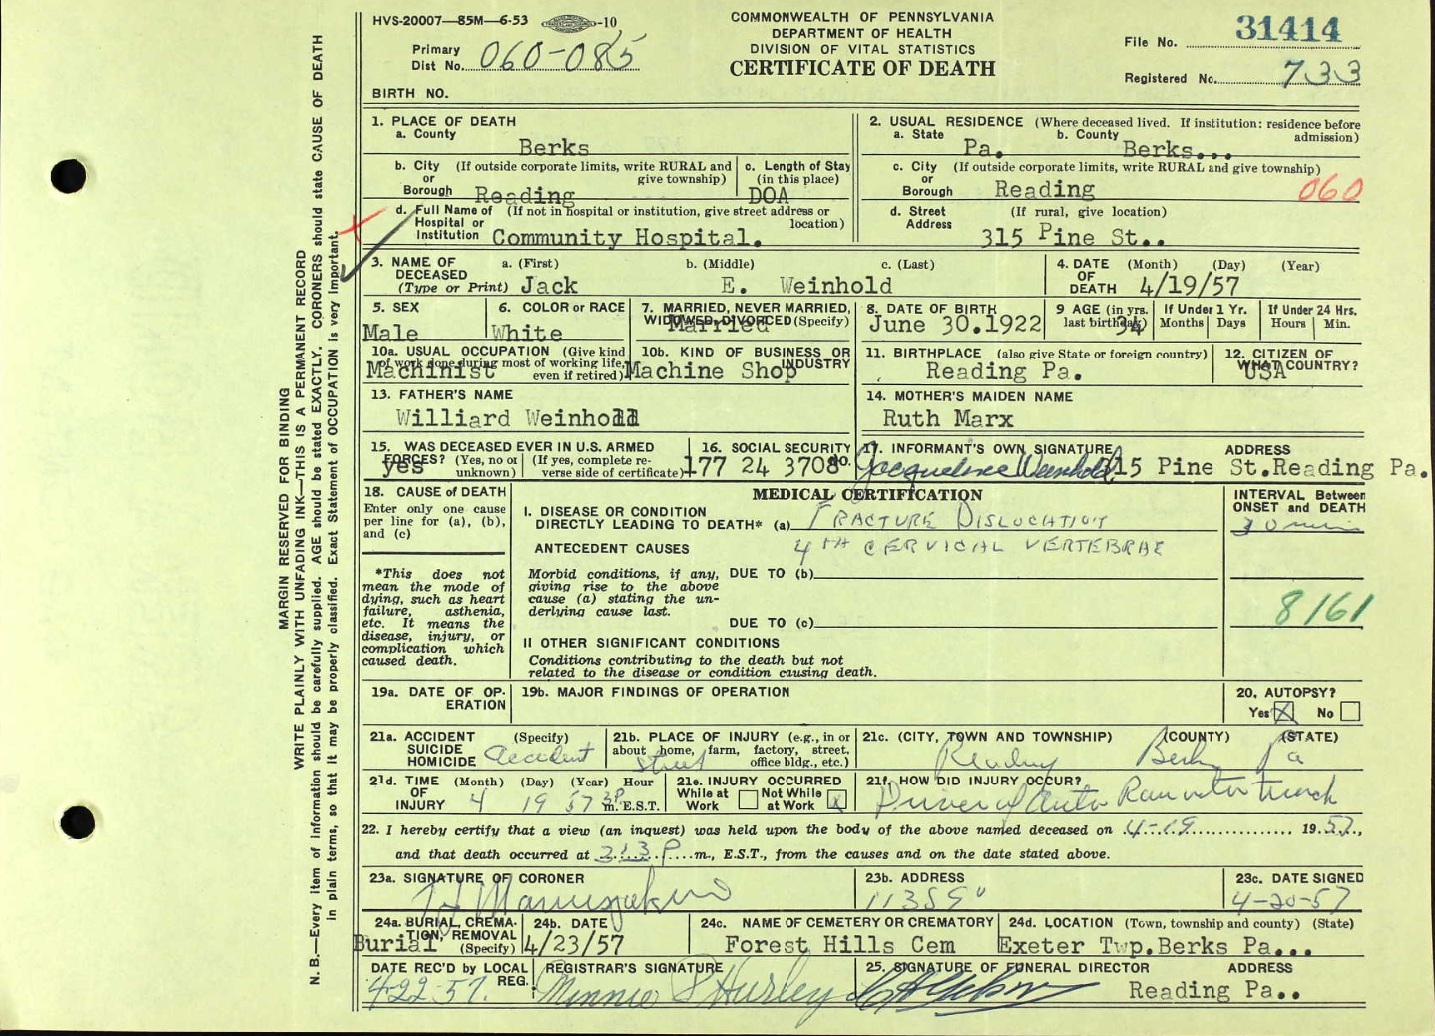 HVS-20007—85M—6-53 -10
COMMONWEALTH OF PENNSYLVANIA
DEPARTMENT OF HEALTH
DIVISION OF VITAL STATISTICS
CERTIFICATE OF DEATH
Primary
Dist No. 060-085
File No. 31414
Registered No. 733
BIRTH NO.
MARGIN RESERVED FOR BINDING
WRITE PLAINLY WITH UNFADING INK—THIS IS A PERMANENT RECORD
N. B.—Every item of information should be carefully supplied. AGE should be stated EXACTLY. CORONERS should state CAUSE OF DEATH
in plain terms, so that it may be properly classified. Exact Statement of OCCUPATION is very important.
1. PLACE OF DEATH
a. County Berks
b. City (If outside corporate limits, write RURAL and give township)
or
Borough Reading
c. Length of Stay
(in this place)
DOA
d. Full Name of (If not in hospital or institution, give street address or location)
Hospital or
Institution Community Hospital.
2. USUAL RESIDENCE (Where deceased lived. If institution: residence before admission)
a. State Pa. b. County Berks...
c. City (If outside corporate limits, write RURAL and give township)
or
Borough Reading 060
d. Street (If rural, give location)
Address 315 Pine St..
3. NAME OF DECEASED (Type or Print)
a. (First) b. (Middle) c. (Last)
Jack E. Weinhold
4. DATE OF DEATH (Month) (Day) (Year)
4/19/57
5. SEX
Male
6. COLOR or RACE
White
7. MARRIED, NEVER MARRIED,
WIDOWED, DIVORCED (Specify)
Married
8. DATE OF BIRTH
June 30.1922
9 AGE (in yrs. last birthday)
34
If Under 1 Yr.
Months Days
If Under 24 Hrs.
Hours Min.
10a. USUAL OCCUPATION (Give kind of work done during most of working life, even if retired)
Machinist
10b. KIND OF BUSINESS OR INDUSTRY
Machine Shop
11. BIRTHPLACE (also give State or foreign country)
Reading Pa.
12. CITIZEN OF WHAT COUNTRY?
USA
13. FATHER'S NAME
Williard Weinhold
14. MOTHER'S MAIDEN NAME
Ruth Marx
15. WAS DECEASED EVER IN U.S. ARMED FORCES? (Yes, no or unknown) (If yes, complete reverse side of certificate)
yes
16. SOCIAL SECURITY NO.
177 24 3708
17. INFORMANT'S OWN SIGNATURE ADDRESS
Jacqueline Weinhold 315 Pine St.Reading Pa.
18. CAUSE of DEATH
Enter only one cause
per line for (a), (b),
and (c)
*This does not
mean the mode of
dying, such as heart
failure, asthenia,
etc. It means the
disease, injury, or
complication which
caused death.
MEDICAL CERTIFICATION
I. DISEASE OR CONDITION
DIRECTLY LEADING TO DEATH* (a) FRACTURE DISLOCATION
4TH CERVICAL VERTEBRAE
ANTECEDENT CAUSES
Morbid conditions, if any, DUE TO (b)
giving rise to the above
cause (a) stating the un-
derlying cause last.
DUE TO (c)
II OTHER SIGNIFICANT CONDITIONS
Conditions contributing to the death but not
related to the disease or condition causing death.
INTERVAL Between
ONSET and DEATH
30 min
8161
19a. DATE OF OP-
ERATION
19b. MAJOR FINDINGS OF OPERATION
20. AUTOPSY?
Yes X No
21a. ACCIDENT (Specify)
SUICIDE
HOMICIDE Accident
21b. PLACE OF INJURY (e.g., in or
about home, farm, factory, street,
office bldg., etc.)
street
21c. (CITY, TOWN AND TOWNSHIP) (COUNTY) (STATE)
Reading Berks Pa
21d. TIME OF INJURY (Month) (Day) (Year) Hour
4 19 57 m. E.S.T.
21e. INJURY OCCURRED
While at Work Not While at Work X
21f. HOW DID INJURY OCCUR?
Driver of auto Ran into truck
22. I hereby certify that a view (an inquest) was held upon the body of the above named deceased on 4-19 1957,
and that death occurred at 213 P m., E.S.T., from the causes and on the date stated above.
23a. SIGNATURE OF CORONER
23b. ADDRESS
23c. DATE SIGNED
4-20-57
24a. BURIAL, CREMA-
TION, REMOVAL
(Specify)
Burial
24b. DATE
4/23/57
24c. NAME OF CEMETERY OR CREMATORY
Forest Hills Cem
24d. LOCATION (Town, township and county) (State)
Exeter Twp.Berks Pa...
DATE REC'D by LOCAL REG.
4-22-57.
REGISTRAR'S SIGNATURE
Minnie S Hurley
25. SIGNATURE OF FUNERAL DIRECTOR ADDRESS
Reading Pa..